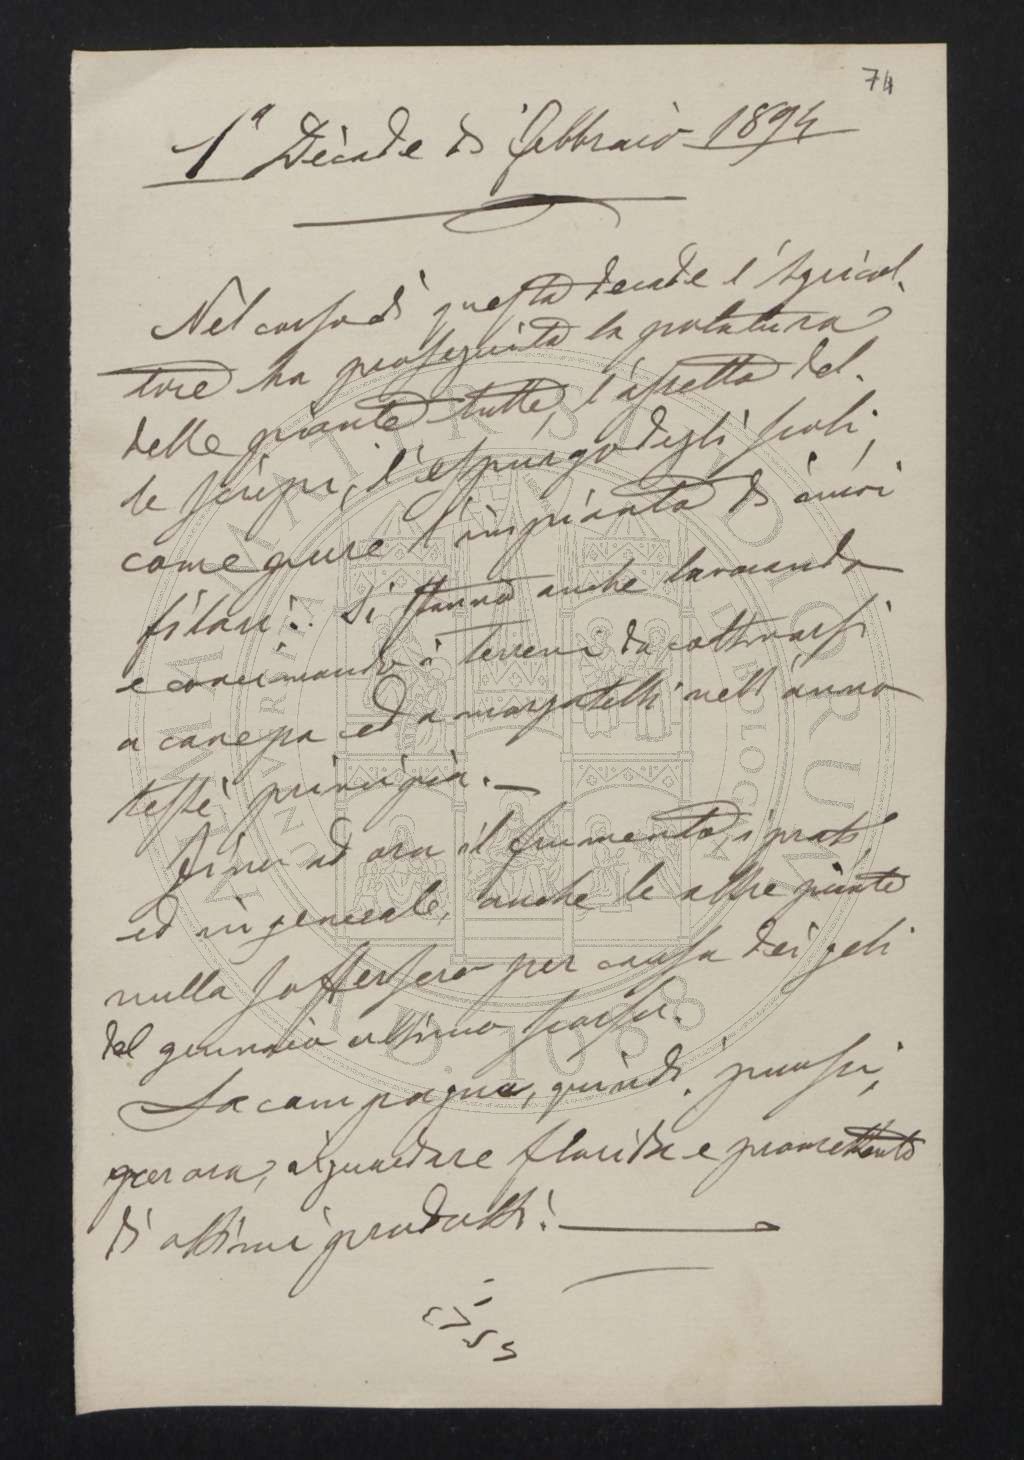 74
1ª Decade di febbraio 1894
Nel corso di questa decade l'Agricol-
tore ha proseguito la potatura
delle piante tutte, l'assetto del-
le siepi, l'espurgo degli scoli,
come pure l'impianto di nuovi
filari. Si stanno anche lavorando
e concimando i terreni da coltivarsi
a canepa ed a marzatelli nell'anno
testè principia. —
Fino ad ora il frumento, i prati
ed in generale, anche le altre piante
nulla soffersero per causa dei geli
del gennaio ultimo scorso.
La campagna, quindi, puossi,
per ora, riguardare florida e promettente
di ottimi prodotti.
ALMI MATRIS STUDIORUM
UNIVERSITÀ DI BOLOGNA
A.D. 1088